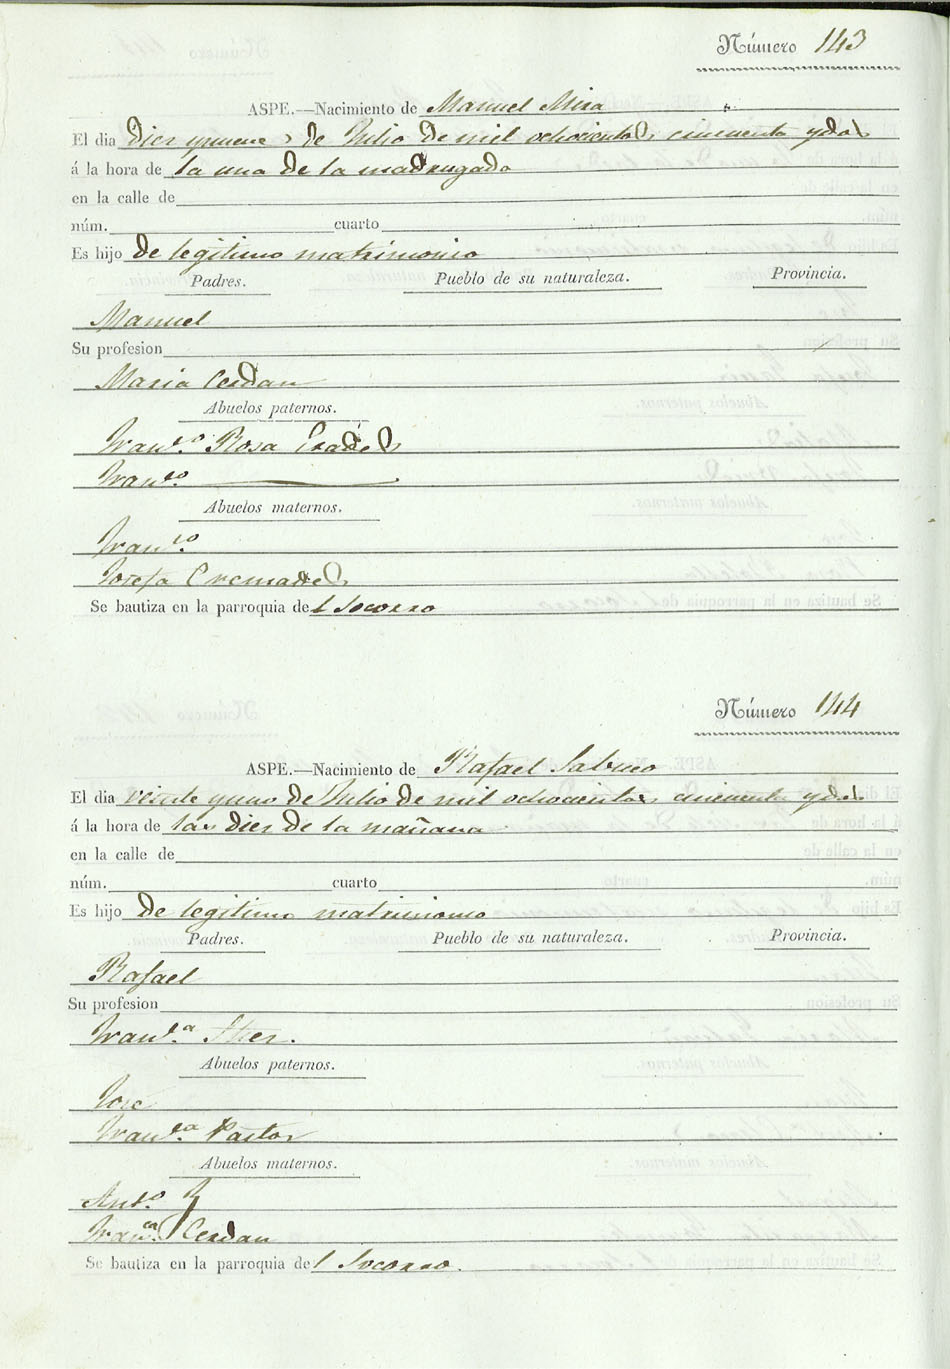 Número 143
ASPE.—Nacimiento de Manuel Mira
El dia diez y nueve de Julio de mil ochocientos cincuenta y dos
á la hora de la una de la madrugada
en la calle de
núm. cuarto
Es hijo de legitimo matrimonio
Padres. Pueblo de su naturaleza. Provincia.
Manuel
Su profesion
Maria Cerdan
Abuelos paternos.
Franco. Rosa
Franco.
Abuelos maternos.
Franco.
Josefa Cremades
Se bautiza en la parroquia del Socorro
Número 144
ASPE.—Nacimiento de Rafael Sabuco
El dia veinte y uno de Julio de mil ochocientos cincuenta y dos
á la hora de las diez de la mañana
en la calle de
núm. cuarto
Es hijo de legitimo matrimonio
Padres. Pueblo de su naturaleza. Provincia.
Rafael
Su profesion
Franca.
Abuelos paternos.
José
Franca. Pastor
Abuelos maternos.
Anto. y
Franca. Cerdan
Se bautiza en la parroquia del Socorro.